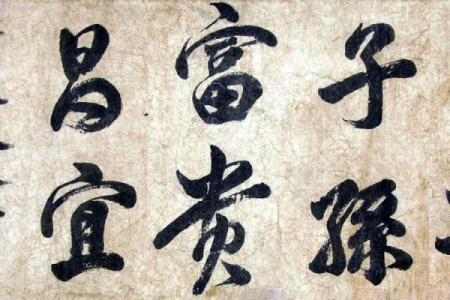 子孫
富貴
昌宜